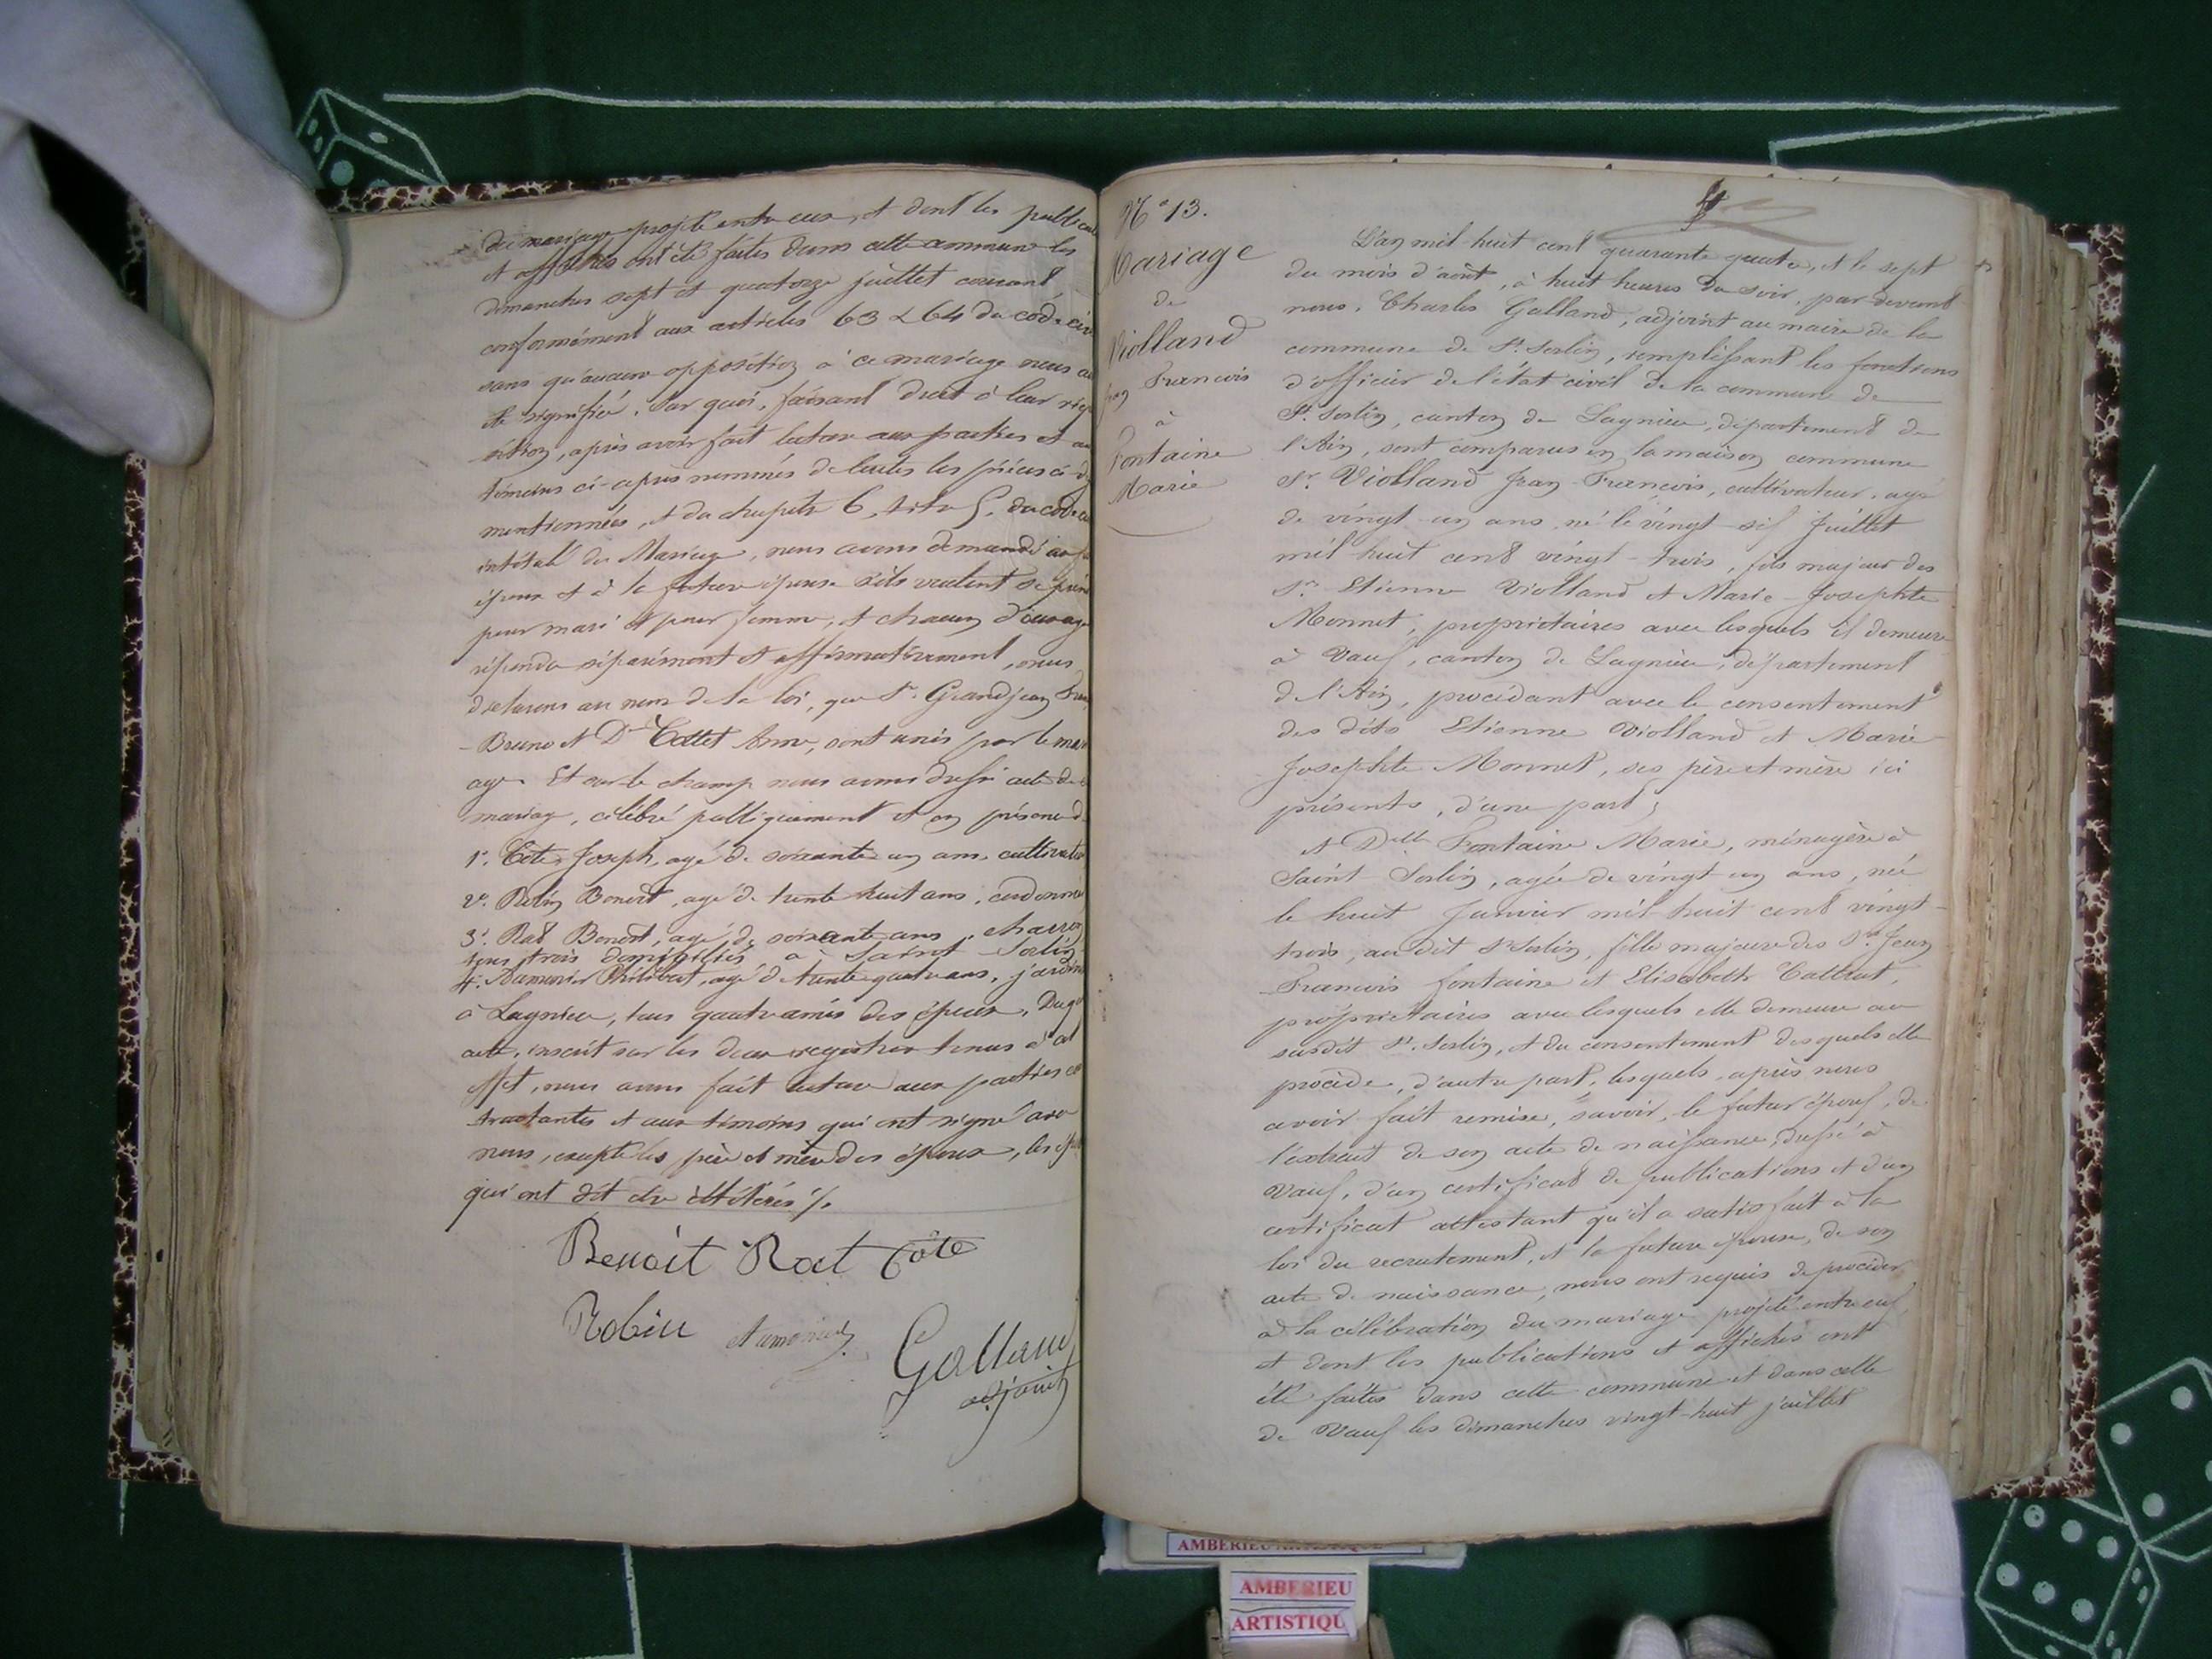 du mariage projeté entre eux, et dont les public
et affiches ont été faites dans cette commune les
dimanches sept et quatorze juillet courant
conformément aux articles 63 & 64 du code civ
sans qu'aucune opposition à ce mariage nous ait
été signifiée. Sur quoi, faisant droit à leur réqui
sition, après avoir fait lecture aux parties et au
témoins ci-après nommés de toutes les pièces ci-d
mentionnées, et du chapitre 6, titre 5, du code c
intitulé du Mariage, nous avons demandé au
époux et à la future épouse s'ils veulent se pren
pour mari et pour femme, et chacun d'eux ay
répondu séparément et affirmativement, nous
déclarons au nom de la loi, que Sr. Grandjean Fran
Bruno et Dlle Collet Anne, sont unis par le mari
age. Et sur le champ nous avons dressé acte de
mariage, célébré publiquement et en présence d
1°. Côte Joseph, agé de soixante un ans, cultivate
2°. Robin Benoit, agé de trente huit ans, cordonnie
3°. Rat Benoit, agé de soixante ans, charron
tous trois domiciliés à Saint Sorlin
4°. Philibert, agé de trente quatre ans, jardin
à Lagnieu, tous quatre amis des époux. Duq
acte, inscrit sur les deux registres tenus à cet
effet, nous avons fait lecture aux parties con
tractantes et aux témoins qui ont signé avec
nous, excepté les père et mère des époux, les ép
qui ont dit être illitérés ./.
Benoit Rat Côte
Robin
Galland
adjoint
N° 13.
Mariage
de
Violland
Jean François
à
Fontaine
Marie
L'an mil huit cent quarante quatre, et le sept
du mois d'août, à huit heures du soir, par devant
nous, Charles Galland, adjoint au maire de la
commune de St. Sorlin, remplissant les fonctions
d'officier de l'état civil de la commune de
St. Sorlin, canton de Lagnieu, département de
l'Ain, sont comparus en la maison commune
Sr. Violland Jean François, cultivateur, agé
de vingt un ans, né le vingt six Juillet
mil huit cent vingt-trois, fils majeur des
Srs. Etienne Violland et Marie Josephte
Monnet, propriétaires avec lesquels il demeure
à Vaux, canton de Lagnieu, département
de l'Ain, procédant avec le consentement
des dits Etienne Violland et Marie
Josephte Monnet, ses père et mère ici
présents, d'une part;
et Dlle Fontaine Marie, ménagère à
Saint Sorlin, agée de vingt un ans, née
le huit Janvier mil huit cent vingt-
trois, au dit St Sorlin, fille majeure des Srs. Jean
François fontaine et Elisabeth
propriétaires avec lesquels elle demeure au
susdit St. Sorlin, et du consentement desquels elle
procède, d'autre part, lesquels, après nous
avoir fait remise, savoir, le futur époux, de
l'extrait de son acte de naissance, dressé à
Vaux, d'un certificat de publications et d'un
certificat attestant qu'il a satisfait à la
loi du recrutement, et la future épouse, de son
acte de naissance, nous ont requis de procéder
à la célébration du mariage projeté entre eux
et dont les publications et affiches ont
été faites dans cette commune et dans celle
de Vaux les dimanches vingt-huit juillet
AMBERIEU ARTISTIQUE
AMBERIEU
ARTISTIQU